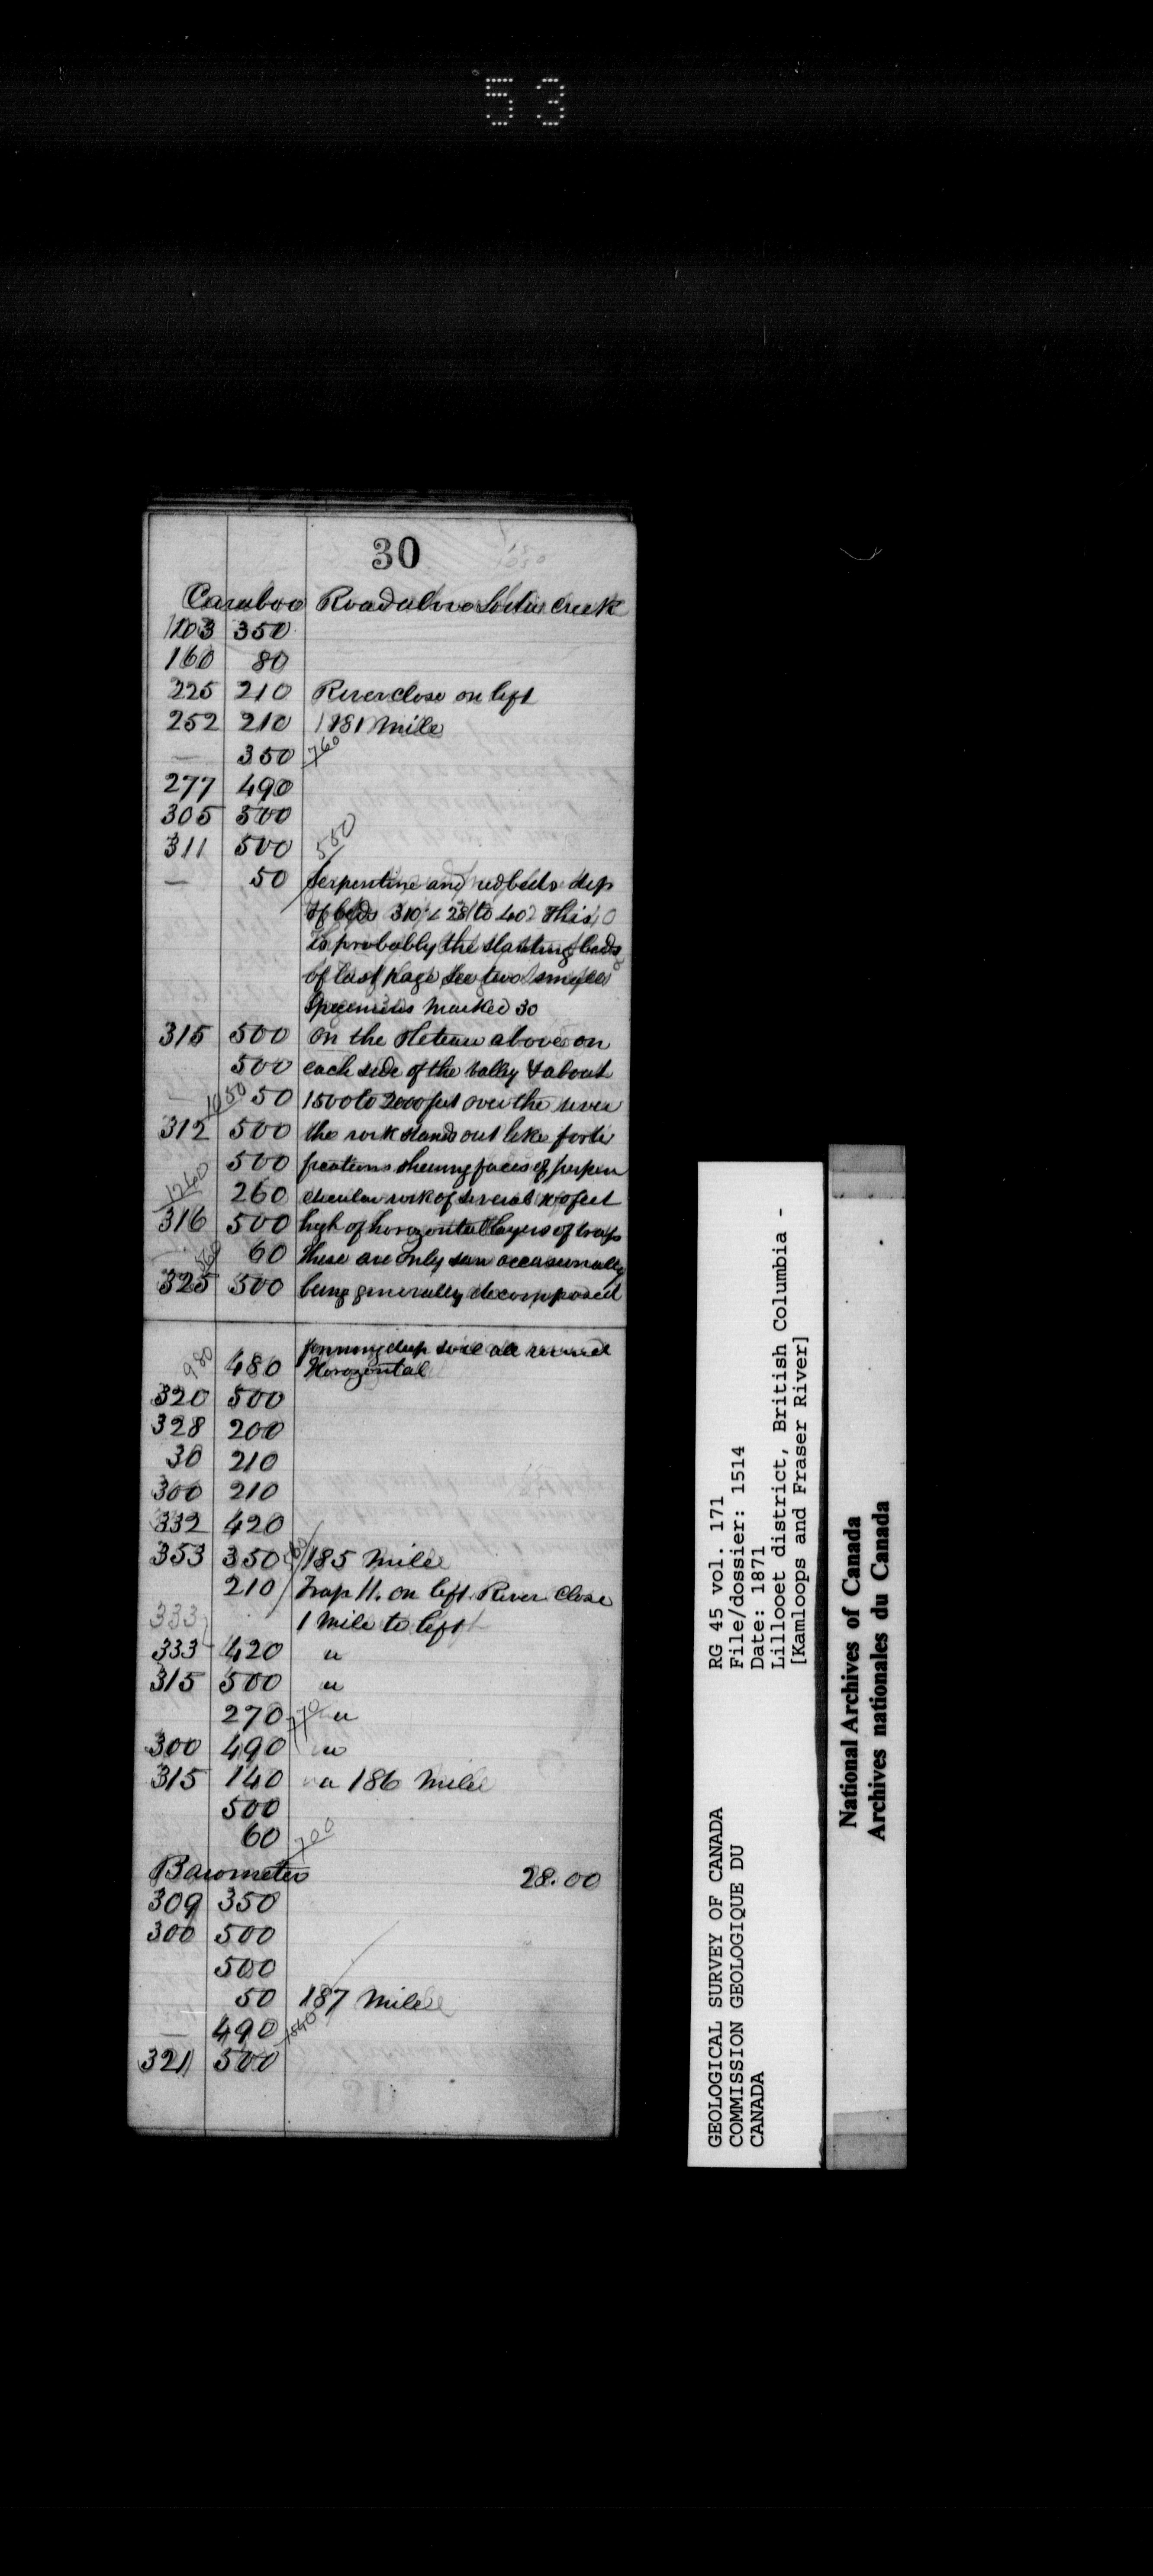 53
30
Cariboo Road above Soda Creek
103 350
160 80
225 210 River close on left
252 210 181 Mile
— 350 760
277 490
305 500
311 500 550
— 50 Serpentine and red beds dip
of beds 310° < 28 to 40° This
is probably the slanting beds
of last page see two small
Specimens marked 30
315 500 On the Pleteau above on
500 each side of the valley & about
— 1050 50 1500 to 2000 feet over the river
312 500 the rock stands out like forti
500 fications shewing faces of perpen
1260 260 dicular rock of several 100 feet
316 500 high of horozontal layers of trap
— 560 60 these are only seen occasionally
325 500 being generally decomposed
forming deep soil all round
980 480 Horozontal
320 500
328 200
30 210
300 210
332 420
353 350 185 Mile
210 Trap 11. on left. River Close
333 1 Mile to left
333 420 "
315 500 "
270 770 "
300 490 "
315 140 " 186 Mile
500
60 700
Barometer 28.00
309 350
300 500
500
50 187 Mile
— 490 1540
321 500
GEOLOGICAL SURVEY OF CANADA
COMMISSION GEOLOGIQUE DU
CANADA
RG 45 vol. 171
File/dossier: 1514
Date: 1871
Lillooet district, British Columbia -
[Kamloops and Fraser River]
National Archives of Canada
Archives nationales du Canada